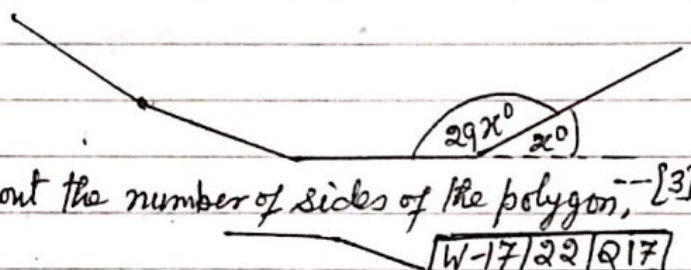 29x° x°
out the number of sides of the polygon, --[3]
W-17/22/Q17